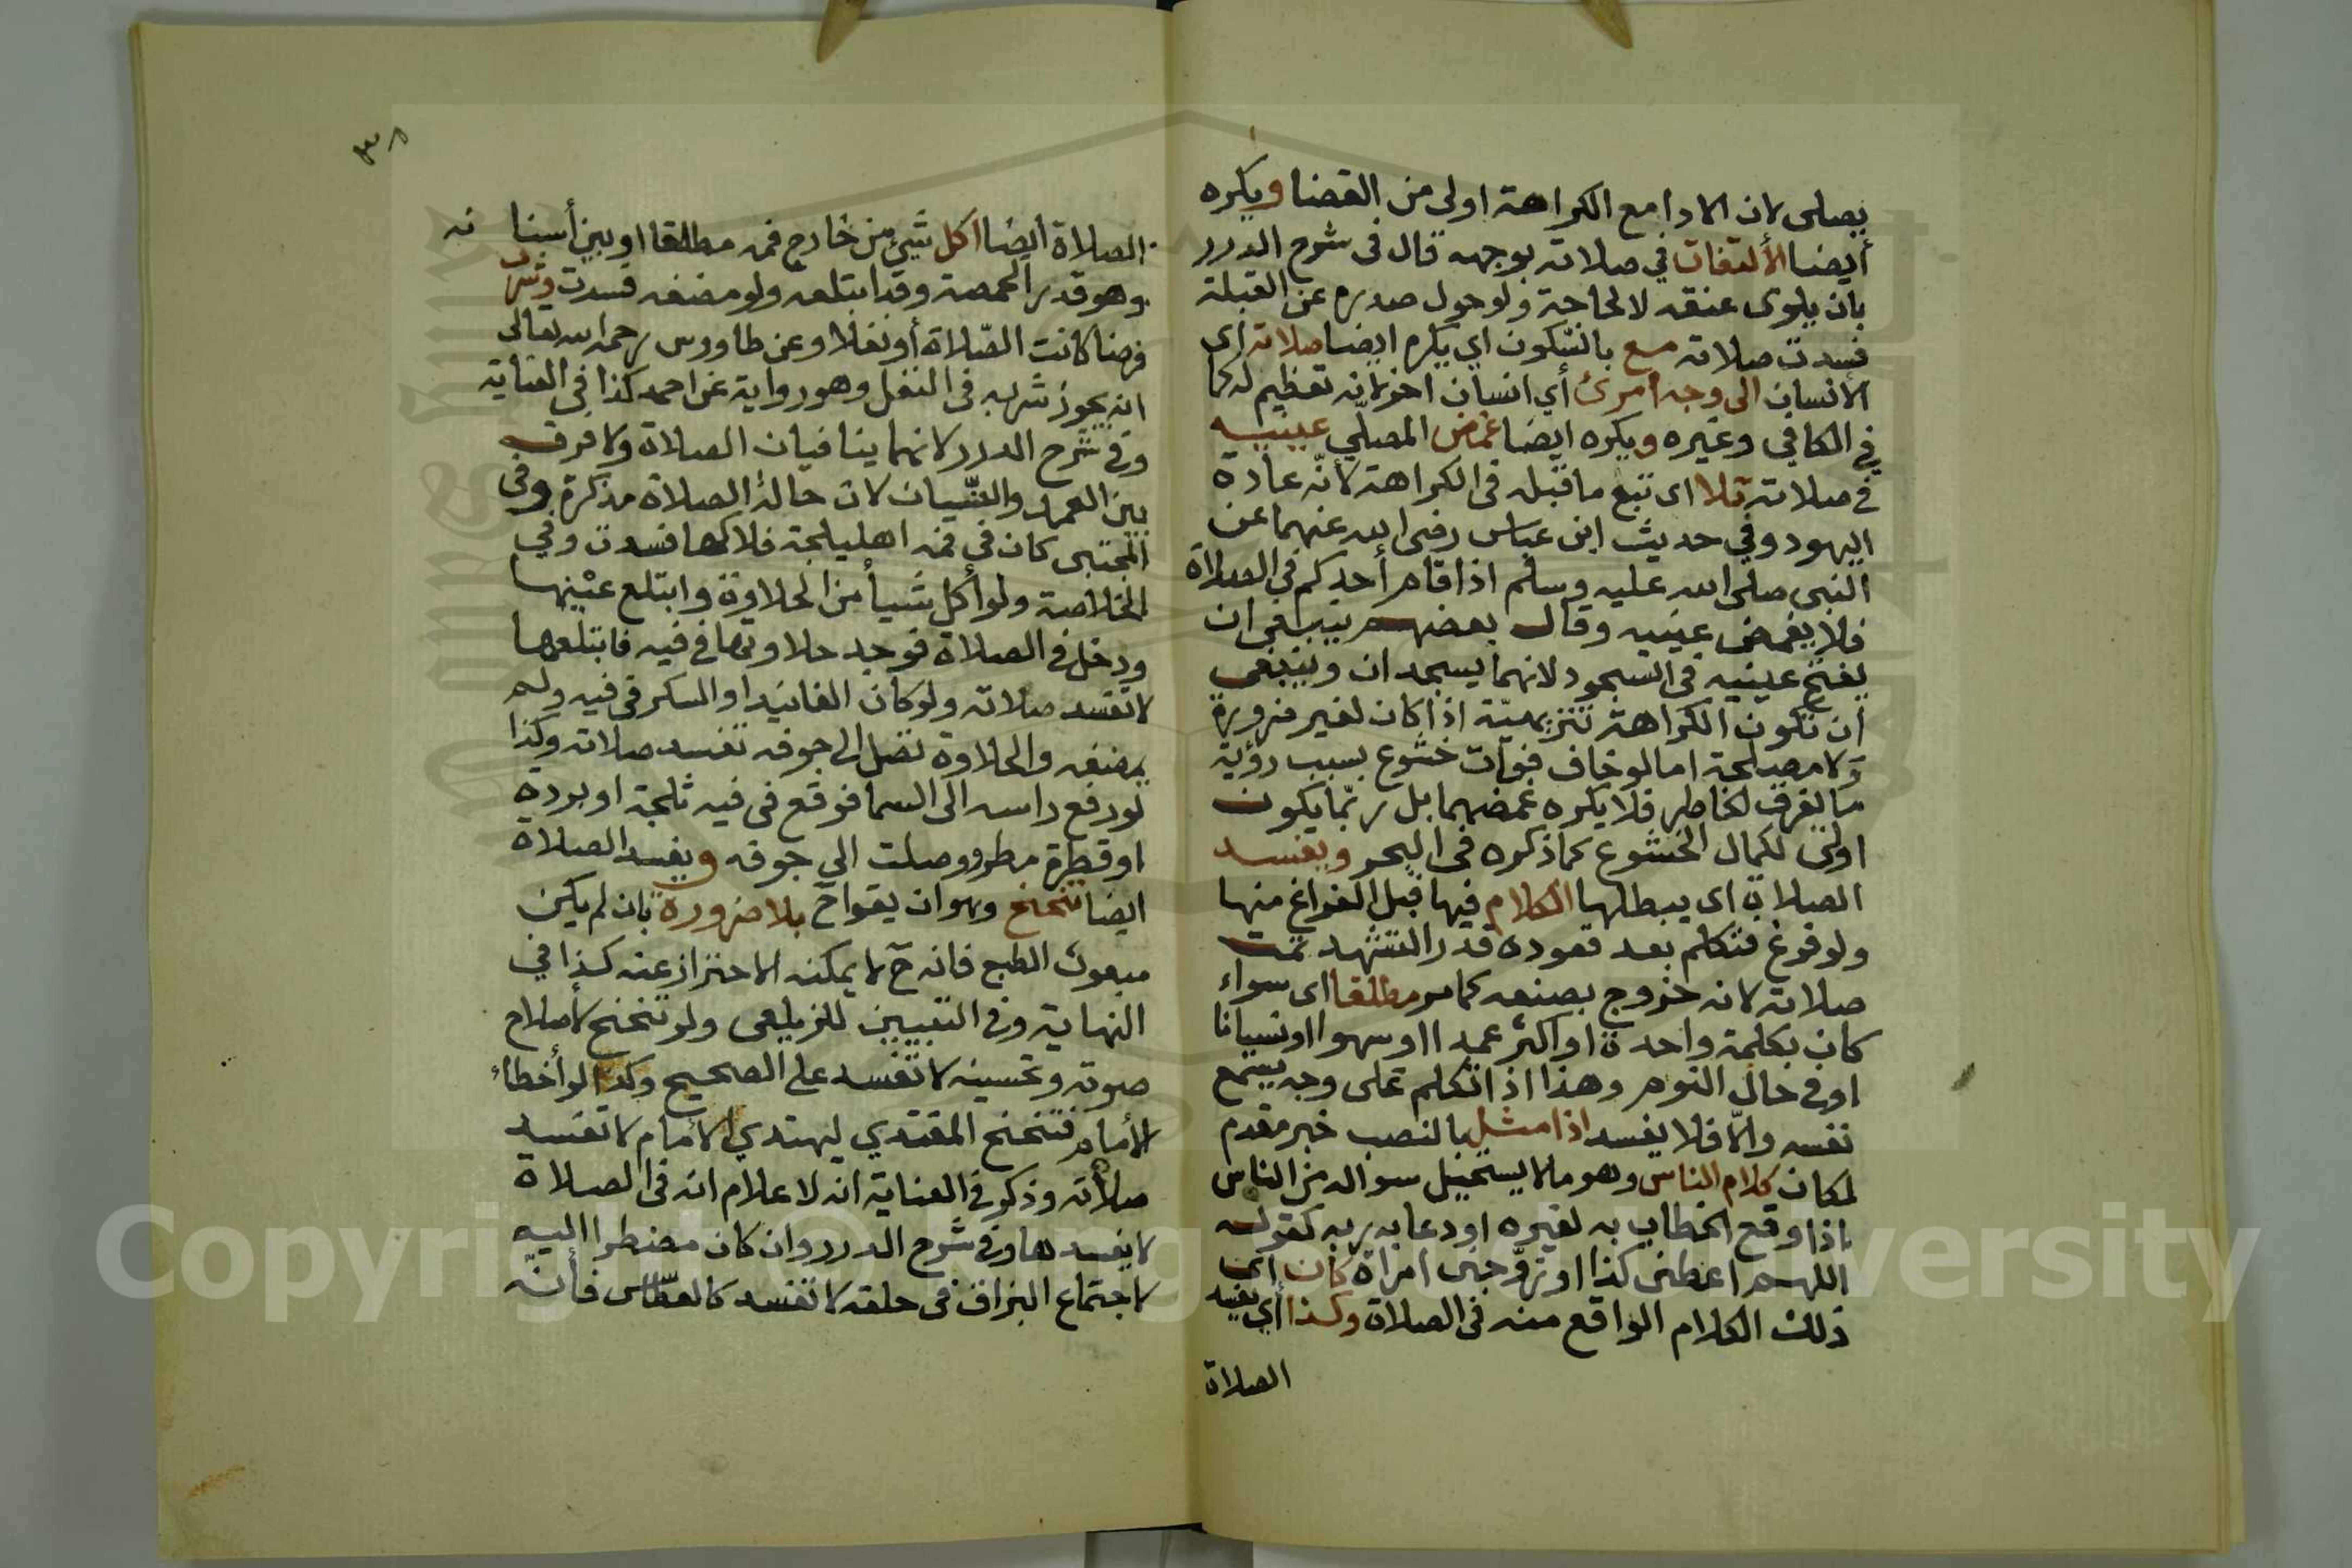 يصلى لان الادا مع الكراهة اولى من القضا ويكره
أيضا الألتفات في صلاته بوجهه قال فى شرح الدرر
بان يلوى عنقه لا لحاجة ولو حول صدره عن القبلة
فسدت صلاته مع بالسكون اي يكره ايضا صلاته اى
الانسان الى وجه امرئ أي انسان اخر لانه تعظيم له كما
في الكافي وغيره ويكره ايضا غمض المصلّي عينيه
في صلاته تلا اى تبع ما قبله فى الكراهة لانّه عادة
اليهود وفي حديث ابن عباس رضى الله عنهما عن
النبى صلى الله عليه وسلم اذا قام أحدكم في الصلاة
فلا يغمض عينيه وقال بعضهم ينبغى ان
يفتح عينيه فى السجود لانهما يسجدان وينبغى
أن تكون الكراهة تنزيهيّة اذا كان لغير ضرورة
ولا مصلحة اما لو خاف فوات خشوع بسبب رؤية
ما يفرق الخاطر فلا يكره غمضهما بل ربّما يكون
اولى لكمال الخشوع كما ذكره فى البحر ويفسد
الصلاة اى يبطلها الكلام فيها قبل الفراغ منها
ولو فرغ فتكلم بعد قعوده قدر التشهد تمت
صلاته لانه خروج بصنعه كما مر مطلقا اى سواء
كان بكلمة واحدة او اكثر عمدا او سهوا او نسيانا
او في حال النوم وهذا اذا تكلم على وجه يسمع
نفسه والاّ فلا يفسد اذا مثل بالنصب خبر مقدم
لمكان كلام الناس وهو ما لا يستحيل سواله من الناس
اذا وقع الخطاب به لغيره او دعا به ربه كقوله
اللهم اعطنى كذا او تزوّجنى امراة كان اى
ذلك الكلام الواقع منه فى الصلاة وكذا أي يفسد
الصلاة
٣٨
الصلاة ايضا اكل شيئ من خارج فمه مطلقا او بين أسنانه
وهو قدر الحمصة وقد ابتلعه ولو مضغه فسدت وشرب
فرضا كانت الصّلاة أو نفلا وعن طاووس رحمه الله تعالى
انه يجوز شربه فى النفل وهو رواية عن احمد كذا في العناية
وفي شرح الدرر لانهما ينافيان الصلاة ولا فرق
بين العمد والنسيان لان حالة الصلاة مذكرة وفى
المجتبى كان في فمه اهليلجة فلاكها فسدت وفي
الخلاصة ولو أكل شيأ من الحلاوة وابتلع عينها
ودخل في الصلاة فوجد حلاوتها في فيه فابتلعها
لا تفسد صلاته ولو كان الفانيد او السكر في فيه ولم
يمضغه والحلاوة تصل الى جوفه تفسد صلاته وكذا
لو رفع راسه الى السما فوقع فى فيه ثلجة او بردة
او قطرة مطر ووصلت الى جوفه ويفسد الصلاة
ايضا تنحنح وهو ان يقول اح بلا ضرورة بان لم يكن
مبعوث الطبع فانه ح لا يمكنه الاحتراز عنه كذا في
النهاية وفي التبيين للزيلعى ولو تنحنح لأصلاح
صوته وتحسينه لا تفسد على الصحيح وكذا لو أخطأ
الأمام فتنحنح المقتدي ليهتدي الأمام لا تفسد
صلاته وذكر في العناية انه لاعلام انه فى الصلاة
لا يفسدها وفي شرح الدرر وان كان مضطرا اليه
لاجتماع البزاق فى حلقه لا تفسد كالعطّاس فأنّه